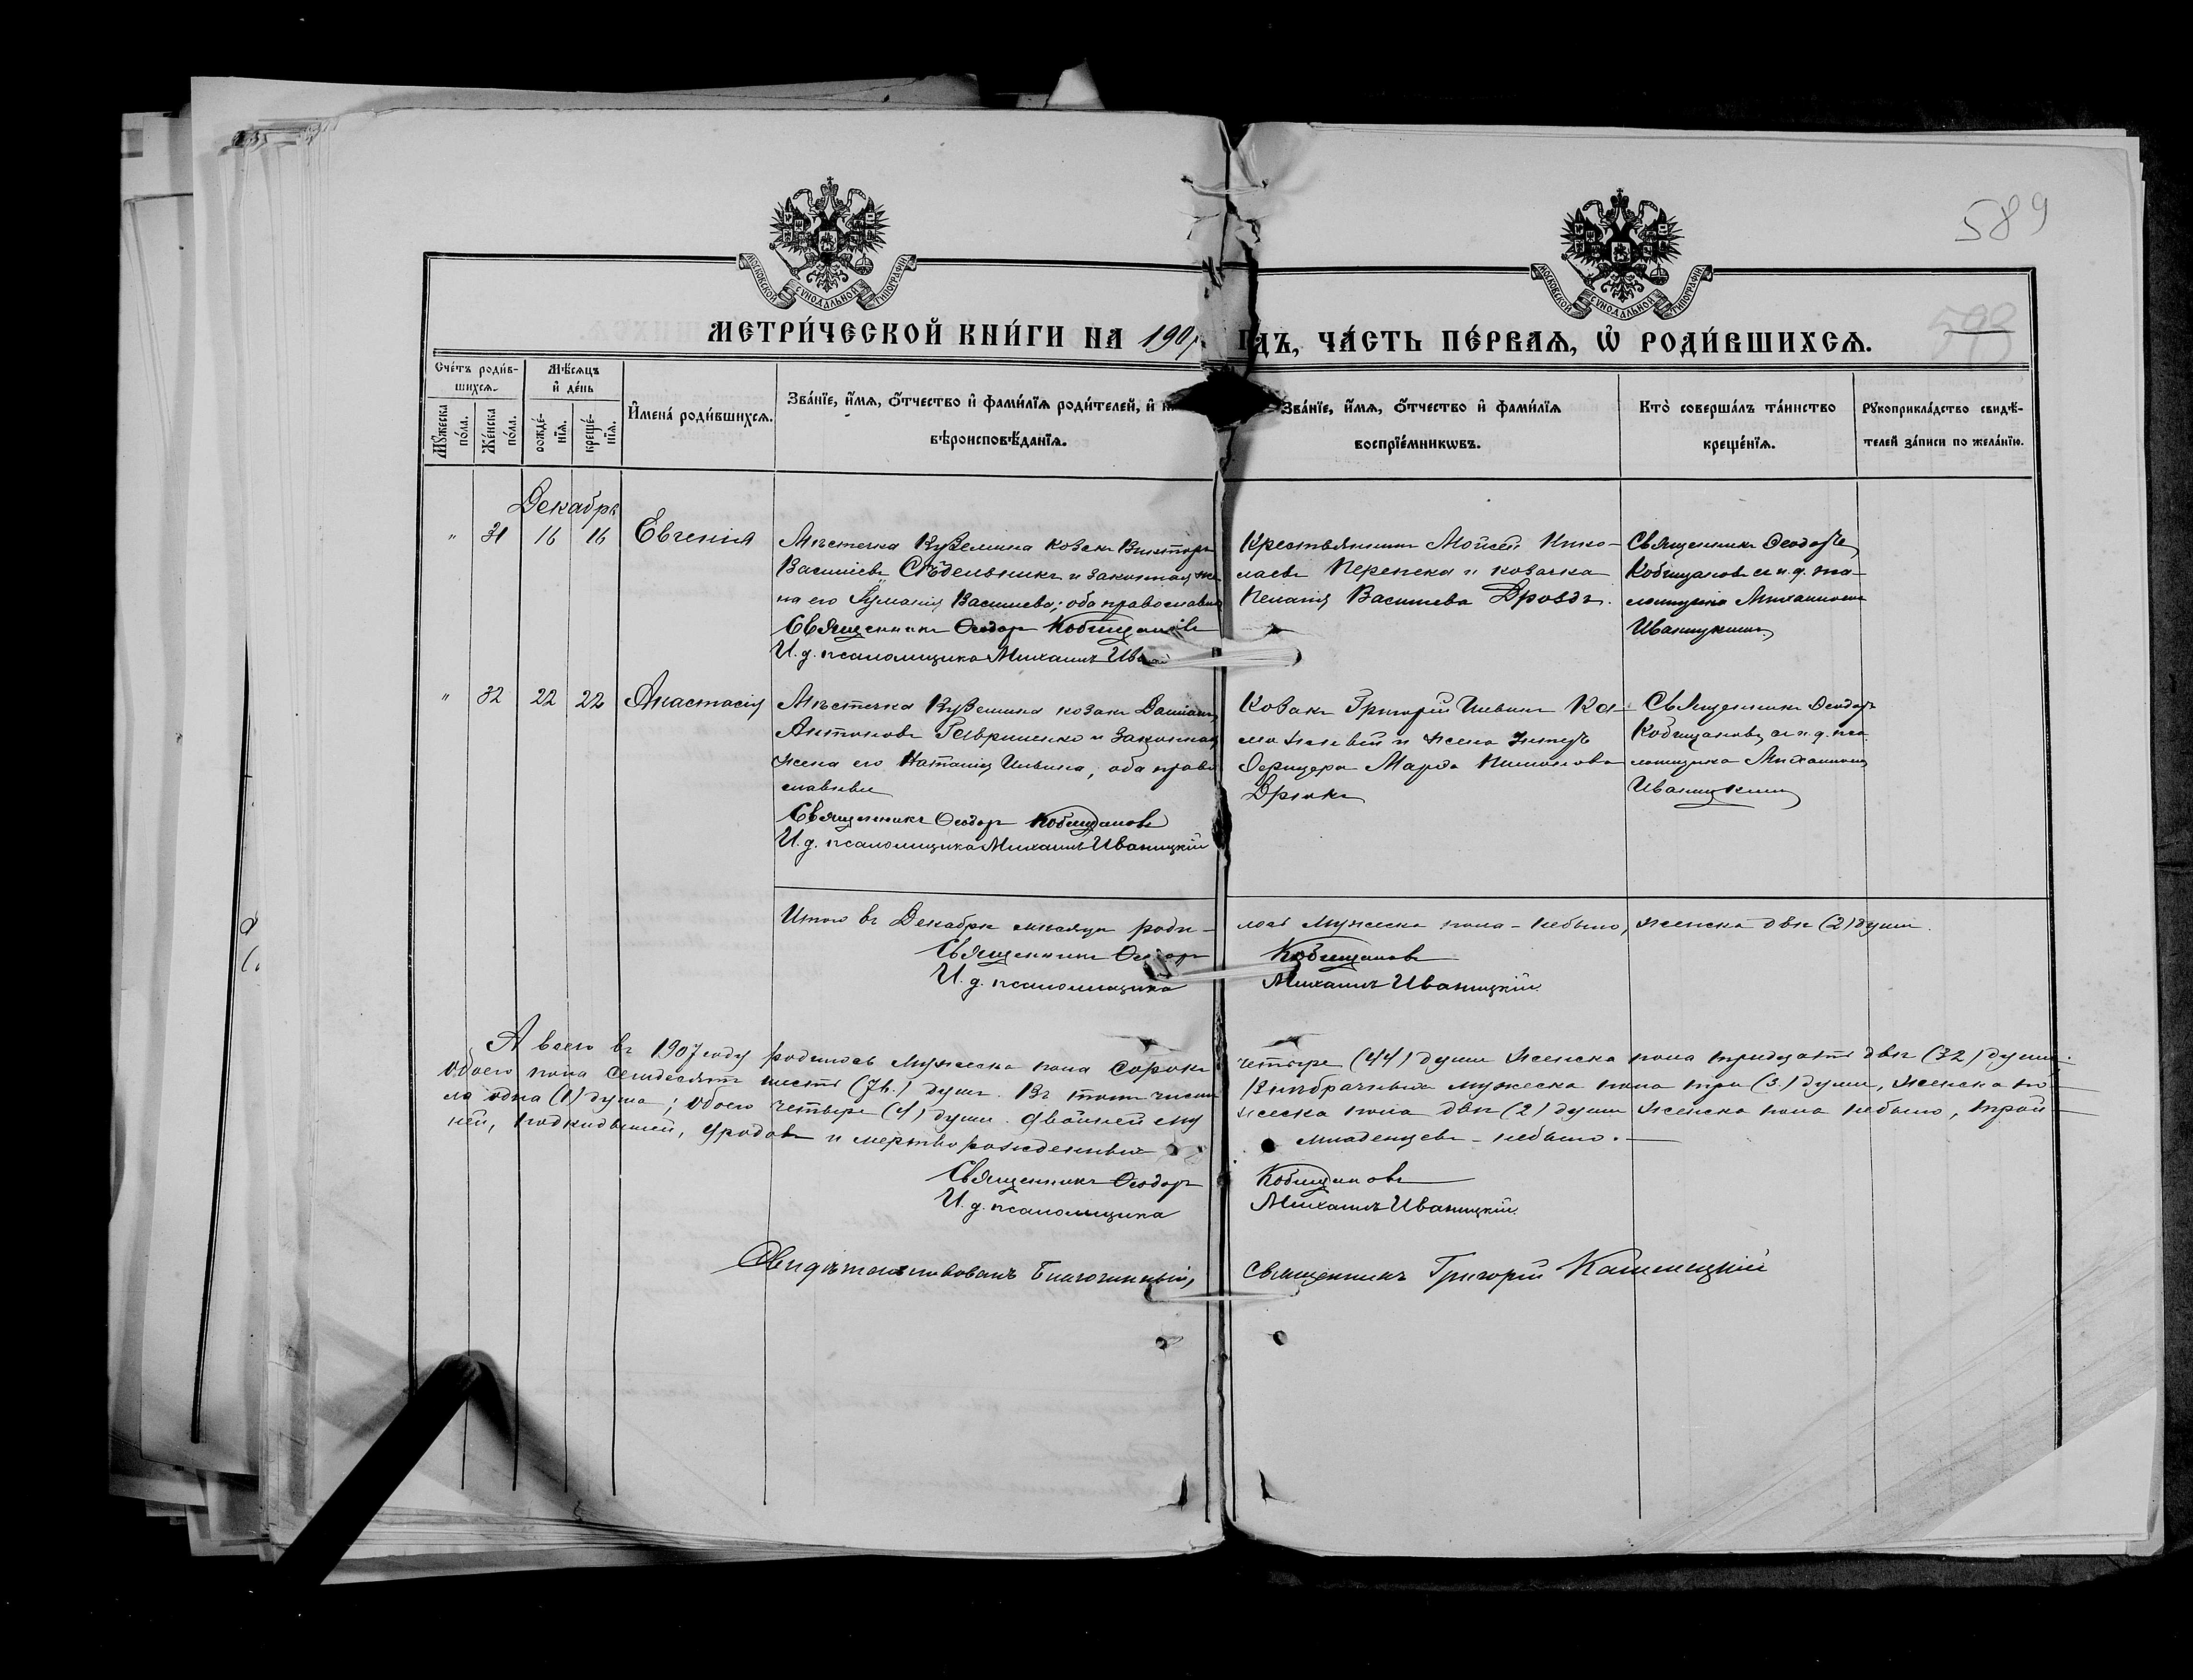 589
МОСКОВСКОЙ СѴНОДАЛЬНОЙ ТИПОГРАФІИ
МОСКОВСКОЙ СѴНОДАЛЬНОЙ ТИПОГРАФІИ
МЕТРИ́ЧЕСКОЙ КНИ́ГИ НА 1907 ГДЪ, ЧА́СТЬ ПЕ́РВАѦ, Ѡ҆ РОДИ́ВШИХСѦ.
Счетъ роди́вшихсѧ.
Мꙋ́жеска по́ла.
Же́нска по́ла.
Мѣ́сѧцъ и҆ де́нь
рожде́нїѧ.
креще́нїѧ.
И҆мена̀ роди́вшихсѧ.
Зва́нїе, и҆́мѧ, ѻ҆́тчество и҆ фами́лїѧ роди́телей, и҆
вѣроисповѣ́данїѧ.
Зва́нїе, и҆́мѧ, ѻ҆́тчество и҆ фами́лїѧ
воспрїе́мникѡвъ.
Кто̀ соверша́лъ та́инство
креще́нїѧ.
Рꙋкоприкла́дство свидѣ́-
телей за́писи по жела́нїю.
Декабрь
" 31 16 16 Евгенія
Мѣстечка Кувемина козакъ Викторъ
Васильевъ Сѣдельникъ и законная же
на его Васильева; оба православные
Священникъ Ѳеодоръ Кобищановъ
И. д. псаломщика Михаилъ Ив
Крестьянинъ Мойсей Нико-
лаевъ Перепека и козачка
Пелагія Васильева Дроздъ.
Священникъ Ѳеодоръ
Кобищановъ съ и. д. пса-
ломщика Михаиломъ
Иваницкимъ
" 32 22 22 Анастасія
Мѣстечка Кувемина козакъ Даміанъ
Антоновъ Гавриленко и законная
жена его Наталія Ильина, оба право
славные
Священникъ Ѳеодоръ Кобищановъ
И. д. псаломщика Михаилъ Иваницкій
Козакъ Григорій Ильинъ
и жена унтеръ
Офицера Марѳа
Дрюкъ
Священникъ Ѳеодоръ
Кобищановъ, съ и. д. пса
ломщика Михаиломъ
Иваницкимъ
Итого въ Декабрѣ мѣсяцѣ роди-
лось мужеска пола - небыло, женска двѣ (2) души.
Священникъ Ѳеодоръ Кобищановъ
И. д. псаломщика Михаилъ Иваницкій.
А всего въ 1907 году родилось мужеска пола сорокъ четыре (44) души женска пола тридцать двѣ (32) души.
Обоего пола семьдесятъ шесть (76.) душъ. Въ томъ числѣ внѣбрачныхъ мужеска пола три (3.) души, женска по-
ла одна (1) душа; обоего четыре (4) души. Двойней му жеска пола двѣ (2) души женска пола небыло, трой-
ней, подкидышей, уродовъ и мертворожденныхъ младенцевъ - небыло.
Священникъ Ѳеодоръ Кобищановъ
И. д. псаломщика Михаилъ Иваницкій.
Свидѣтельствовалъ Благочинный, священникъ Григорій Каминицкій